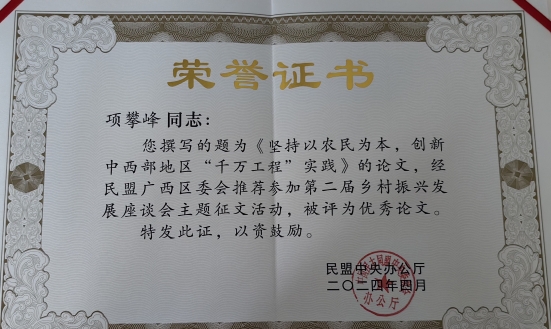 荣誉证书
项攀峰 同志：
您撰写的题为《坚持以农民为本，创新
中西部地区“千万工程”实践》的论文，经
民盟广西区委会推荐参加第二届乡村振兴发
展座谈会主题征文活动，被评为优秀论文。
特发此证，以资鼓励。
民盟中央办公厅
二〇二四年四月
办公厅